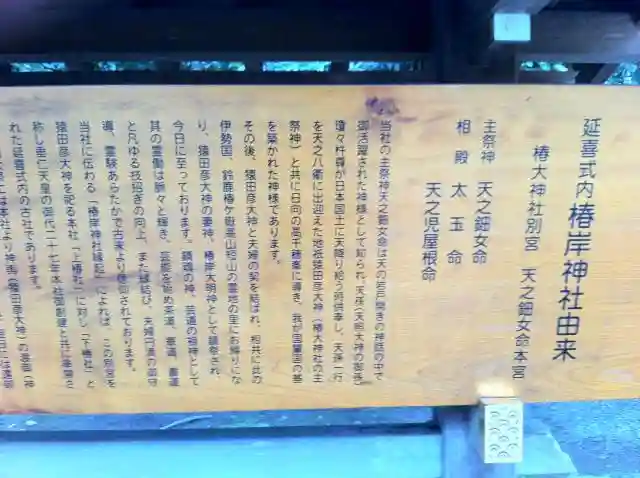 延喜式内 椿岸神社由来
椿大神社別宮 天之鈿女命本宮
主祭神 天之鈿女命
相殿 太玉命
天之児屋根命
当社の主祭神天之鈿女命は天の岩戸開きの神話の中で
御活躍された神様として知られ、天孫(天照大神の御孫)
瓊々杵尊が日本国土に天降り給う時供奉し、天孫一行
を天之八衢に出迎えた地祇猿田彦大神(椿大神社の主
祭神)と共に日向の高千穂峯に導き、我が国肇国の基
を築かれた神様であります。
その後、猿田彦大神と夫婦の契を結ばれ、相共に此の
伊勢国、鈴鹿椿ケ嶽高山短山の霊地の里にお鎮りにな
り、猿田彦大神の妻神、椿岸大明神として鎮祭され、
今日に至っております。鎮魂の神、芸道の祖神として
其の霊働は脈々と輝き、芸能を始め茶道、華道、書道
と凡ゆる技芸の向上、また縁結び、夫婦円満の御守
導、霊験あらたかで古来より信仰されております。
当社に伝わる「椿岸神社縁起」によれば、この別宮を
猿田彦大神を祀る本社「上椿社」に対し「下椿社」と
称し垂仁天皇の御代二十七年本社御創建と共に奉斎さ
れた延喜式内の古社であります。
は本社より神輿(猿田彦大神)の渡御(神